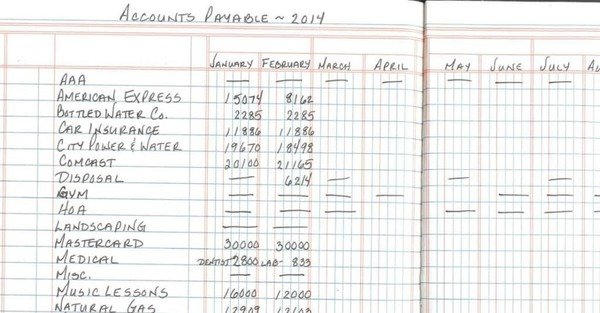 ACCOUNTS PAYABLE ~ 2014
JANUARY FEBRUARY MARCH APRIL MAY JUNE JULY
AAA — — — — — — —
AMERICAN EXPRESS 15074 8162
BOTTLED WATER CO. 2285 2285
CAR INSURANCE 11886 11886
CITY POWER & WATER 19670 18498
COMCAST 20100 21165
DISPOSAL — 6214 — — —
GYM — — — — — —
HOA — — — — — —
LANDSCAPING — —
MASTERCARD 30000 30000
MEDICAL DENTIST 2800 LAB- 833
MISC. — —
MUSIC LESSONS 16000 12000
NATURAL GAS